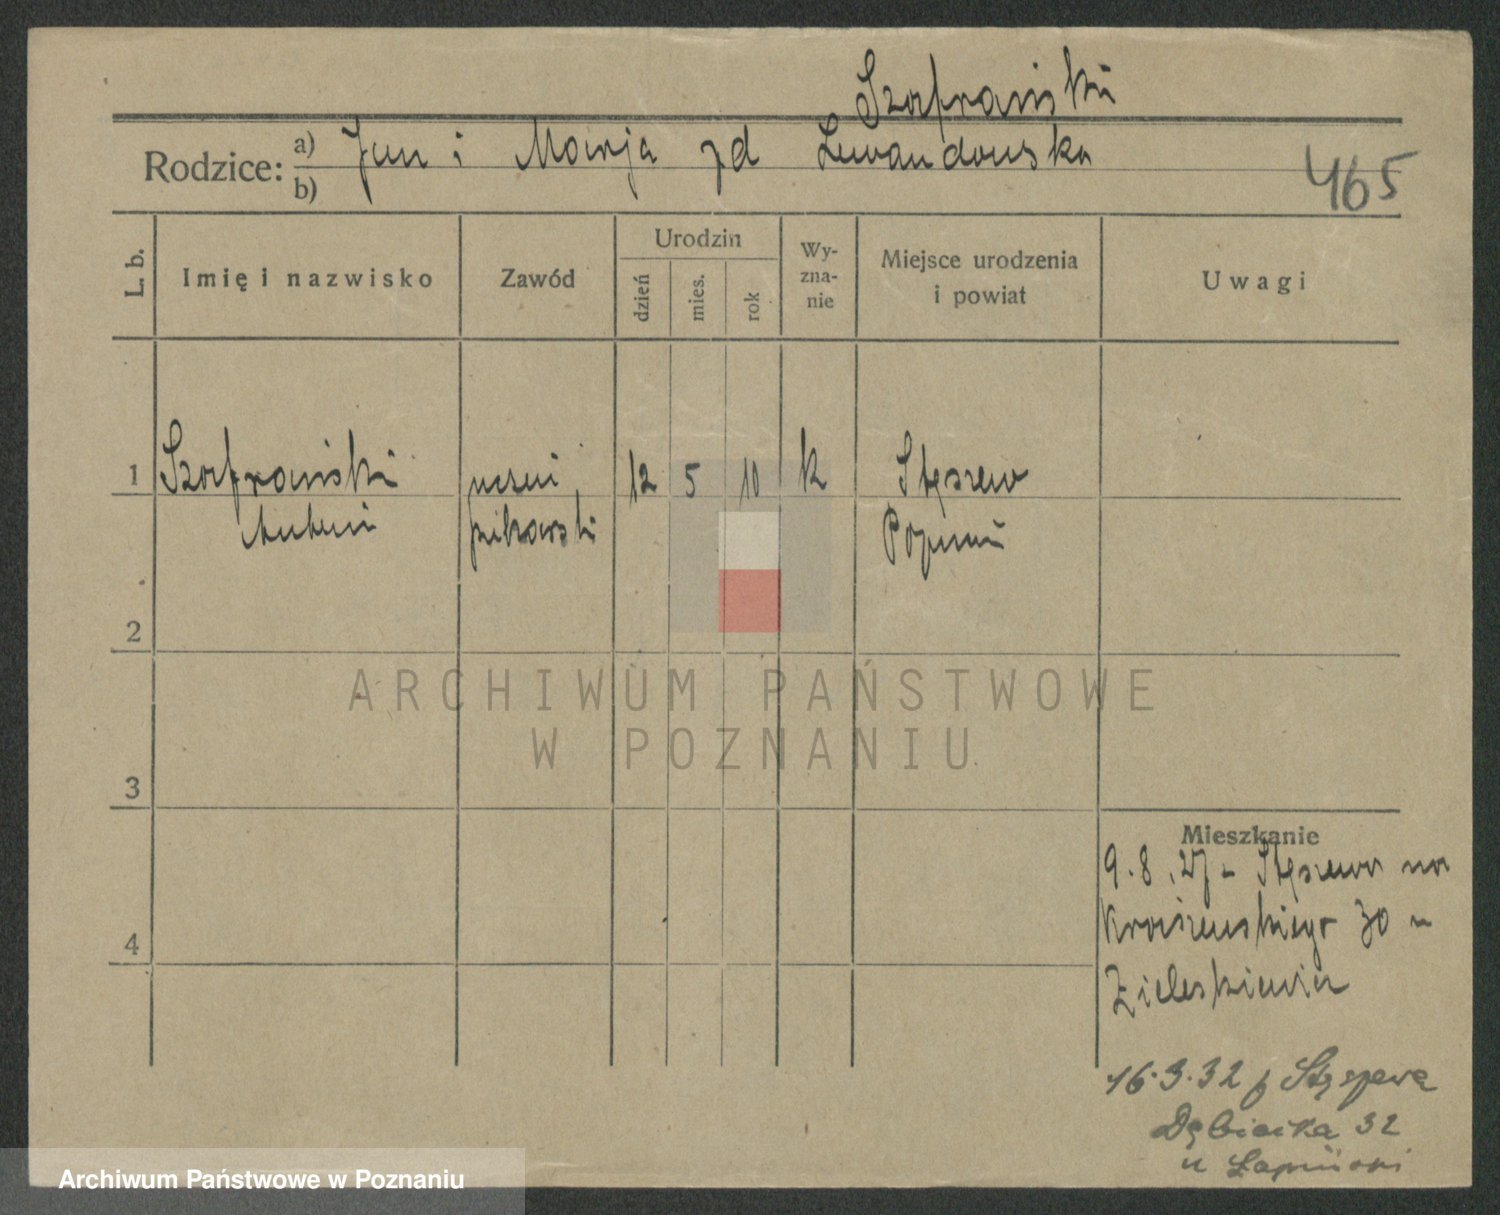 Szafrański
Rodzice: a) Jan i Marja zd Lewandowska
b)
465
L. b. Imię i nazwisko Zawód Urodzin dzień mies. rok Wy-zna-nie Miejsce urodzenia i powiat Uwagi
1 Szafrański uczeń 12 5 10 k Stęszew
Antoni piekarski Poznań
2
3
4
Mieszkanie
9.8.27 - Stęszewa na
Kraszewskiego 30 u
16.3.32 z Stęszewa
32
u
ARCHIWUM PAŃSTWOWE
W POZNANIU
Archiwum Państwowe w Poznaniu